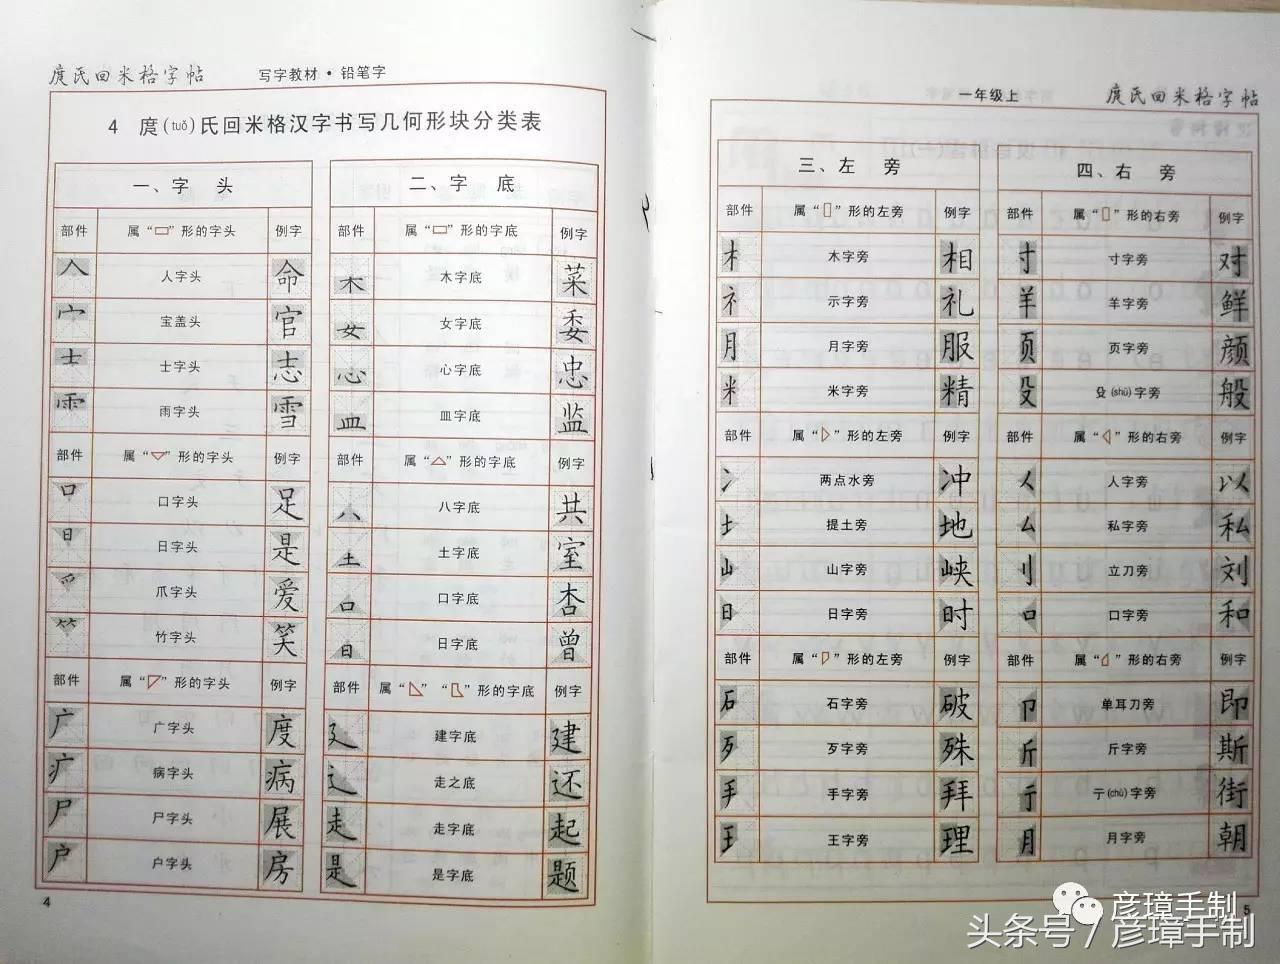 庹氏回米格字帖 写字教材·铅笔字
4 庹(tuǒ)氏回米格汉字书写几何形块分类表
一、字 头
部件 属“▭”形的字头 例字
人 人字头 命
宀 宝盖头 官
士 士字头 志
雨 雨字头 雪
部件 属“▽”形的字头 例字
口 口字头 足
日 日字头 是
爫 爪字头 爱
⺮ 竹字头 笑
部件 属“”形的字头 例字
广 广字头 度
疒 病字头 病
尸 尸字头 展
户 户字头 房
二、字 底
部件 属“▭”形的字底 例字
木 木字底 菜
女 女字底 委
心 心字底 忠
皿 皿字底 监
部件 属“△”形的字底 例字
八 八字底 共
土 土字底 室
口 口字底 杏
日 日字底 曾
部件 属“” “”形的字底 例字
廴 建字底 建
辶 走之底 还
走 走字底 起
是 是字底 题
4
一年级上 庹氏回米格字帖
三、左 旁
部件 属“▯”形的左旁 例字
木 木字旁 相
礻 示字旁 礼
月 月字旁 服
米 米字旁 精
部件 属“▷”形的左旁 例字
冫 两点水旁 冲
土 提土旁 地
山 山字旁 峡
日 日字旁 时
部件 属“”形的左旁 例字
石 石字旁 破
歹 歹字旁 殊
手 手字旁 拜
王 王字旁 理
四、右 旁
部件 属“▯”形的右旁 例字
寸 寸字旁 对
羊 羊字旁 鲜
页 页字旁 颜
殳 殳(shū)字旁 般
部件 属“◁”形的右旁 例字
人 人字旁 以
厶 私字旁 私
刂 立刀旁 刘
口 口字旁 和
部件 属“”形的右旁 例字
卩 单耳刀旁 即
斤 斤字旁 斯
亍 亍(chù)字旁 街
月 月字旁 朝
5
彦璋手制
头条号 / 彦璋手制